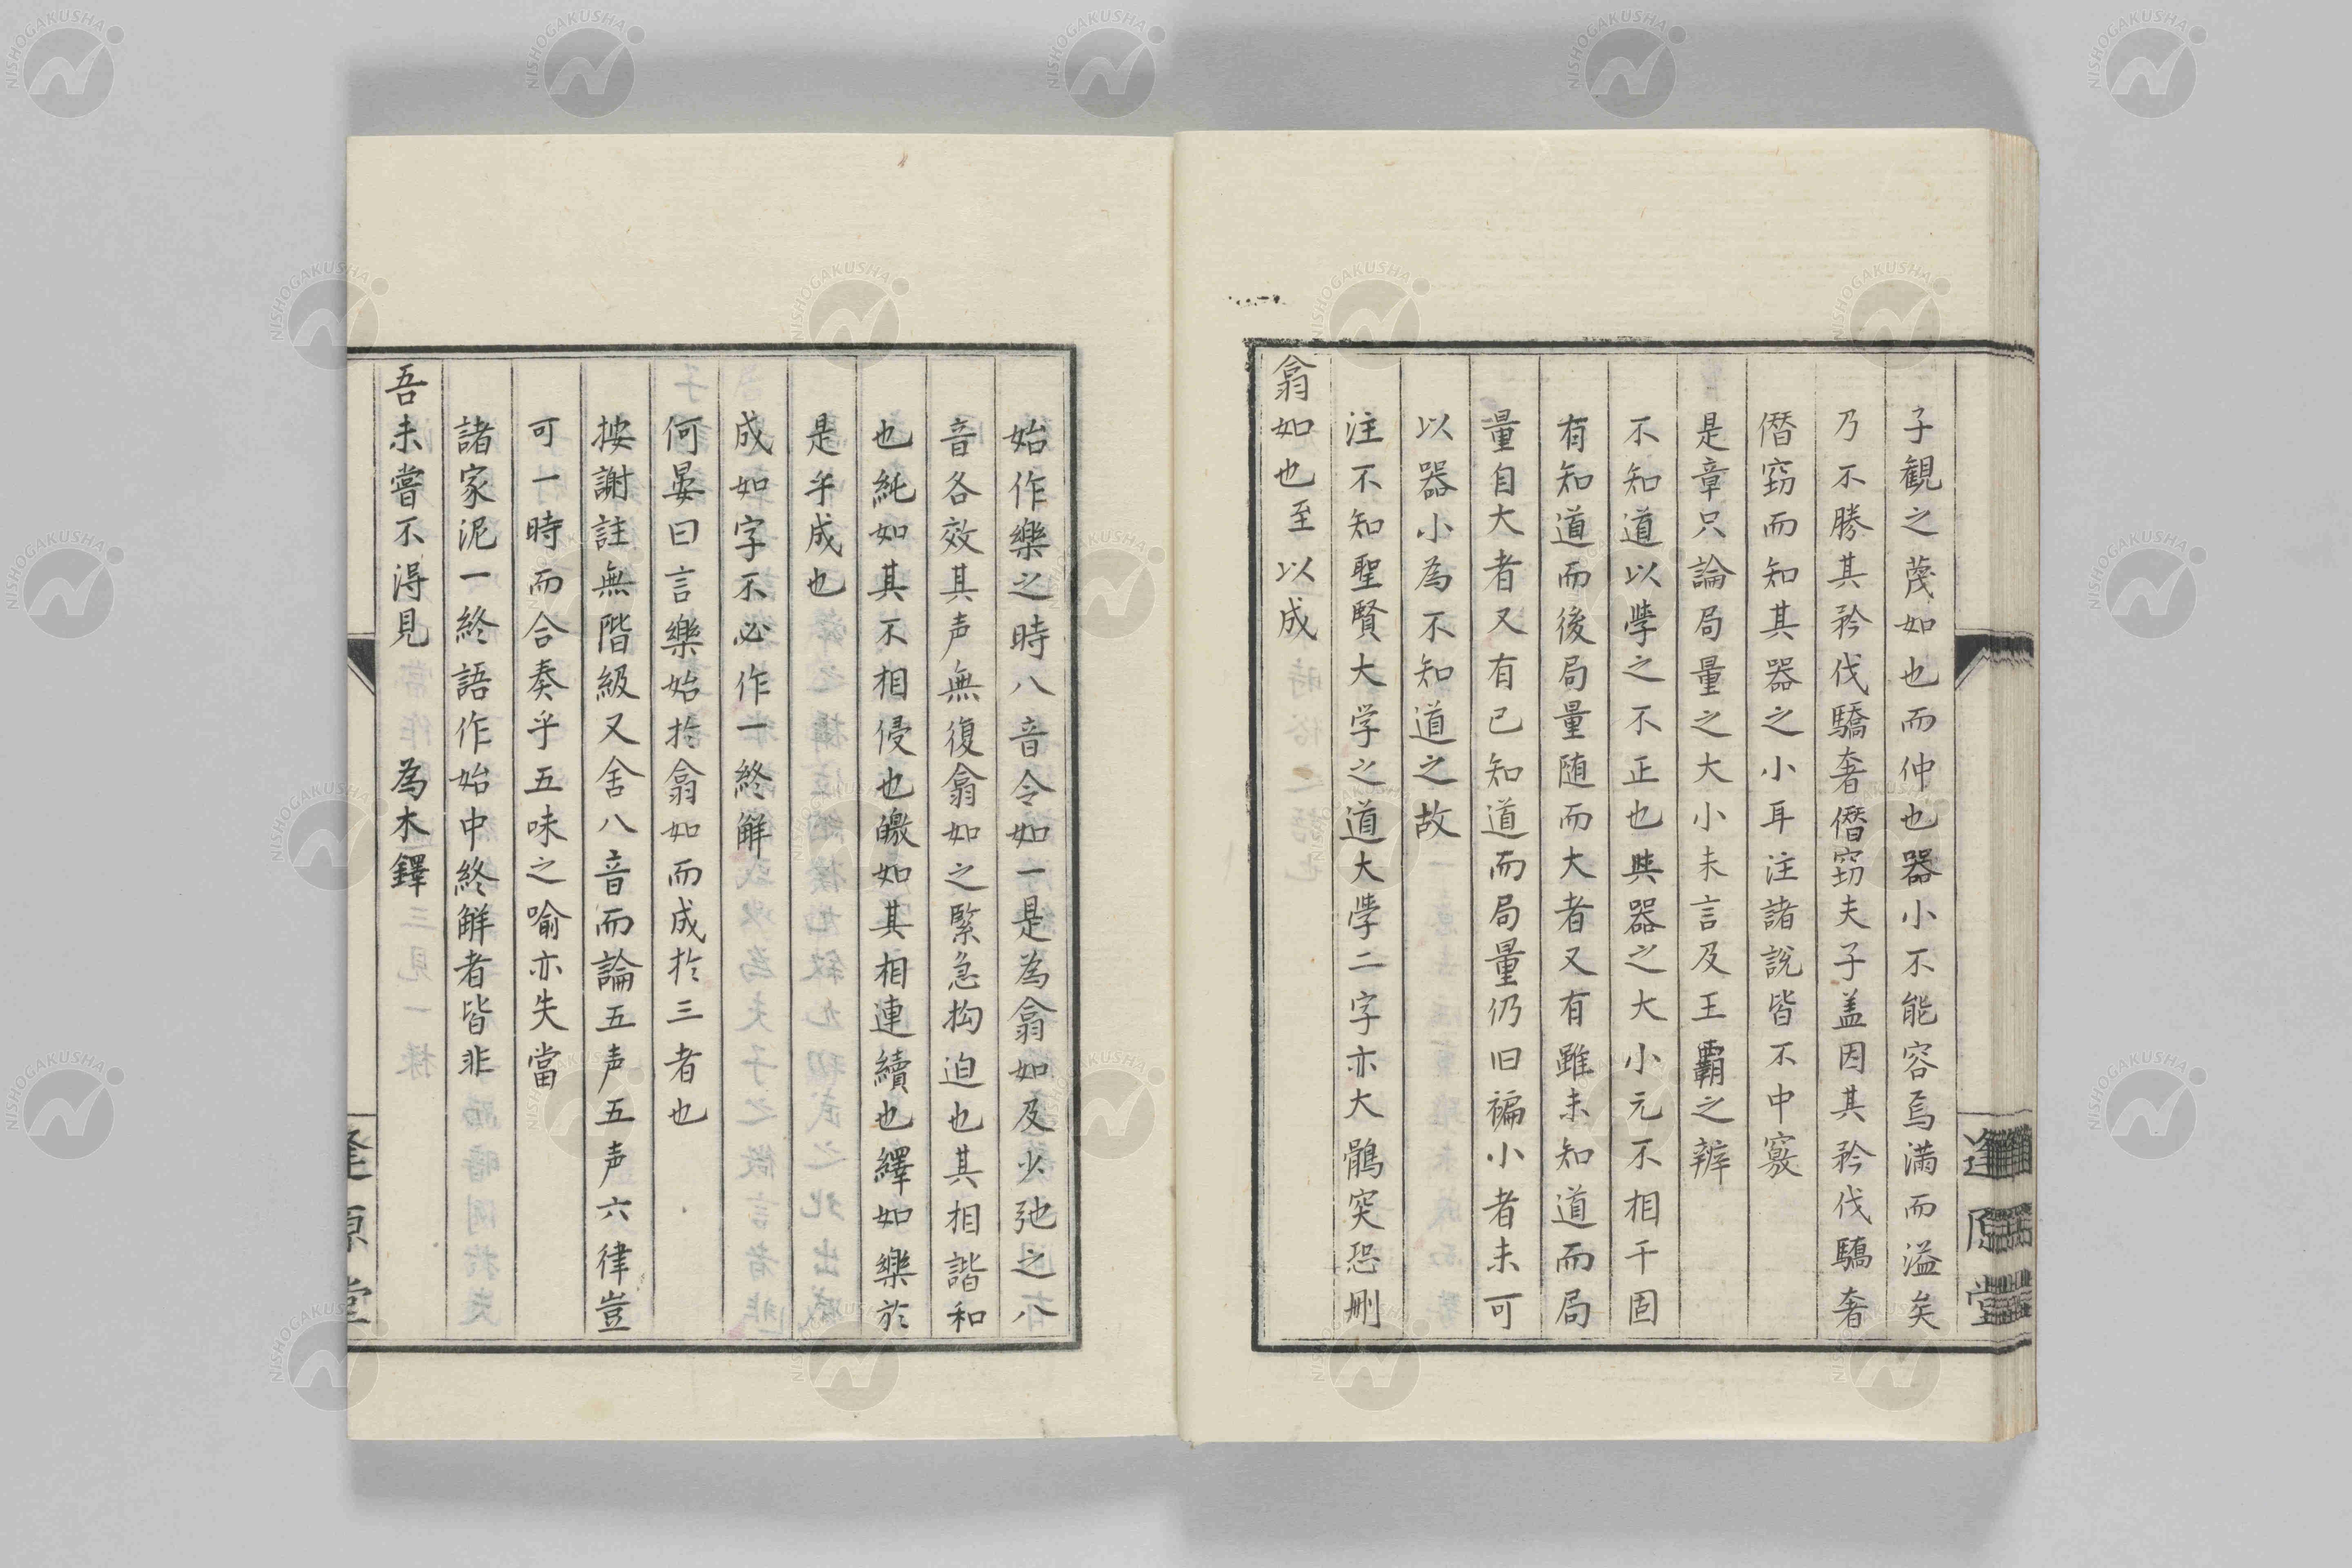 子觀之蔑如也而仲也器小不能容焉滿而溢矣
乃不勝其矜伐驕奢僭窃夫子盖因其矜伐驕奢
僭窃而知其器之小耳注諸説皆不中窾
是章只論局量之大小未言及王霸之辨
不知道以学之不正也與器之大小元不相干固
有知道而後局量随而大者又有雖未知道而局
量自大者又有已知道而局量仍旧褊小者未可
以器小為不知道之故
注不知聖賢大学之道大学二字亦大鶻突恐刪
翕如也至以成
逢原堂
始作樂之時八音令如一是為翕如及少弛之八
音各效其声無復翕如之緊急拘迫也其相諧和
也純如其不相侵也皦如其相連續也繹如樂於
是乎成也
成如字不必作一終解
何晏曰言樂始於翕如而成於三者也
按謝註無階級又舍八音而論五声五声六律豈
可一時而合奏乎五味之喻亦失當
諸家泥一終語作始中終解者皆非
吾未嘗不得見 為木鐸
逢原堂
NISHOGAKUSHA